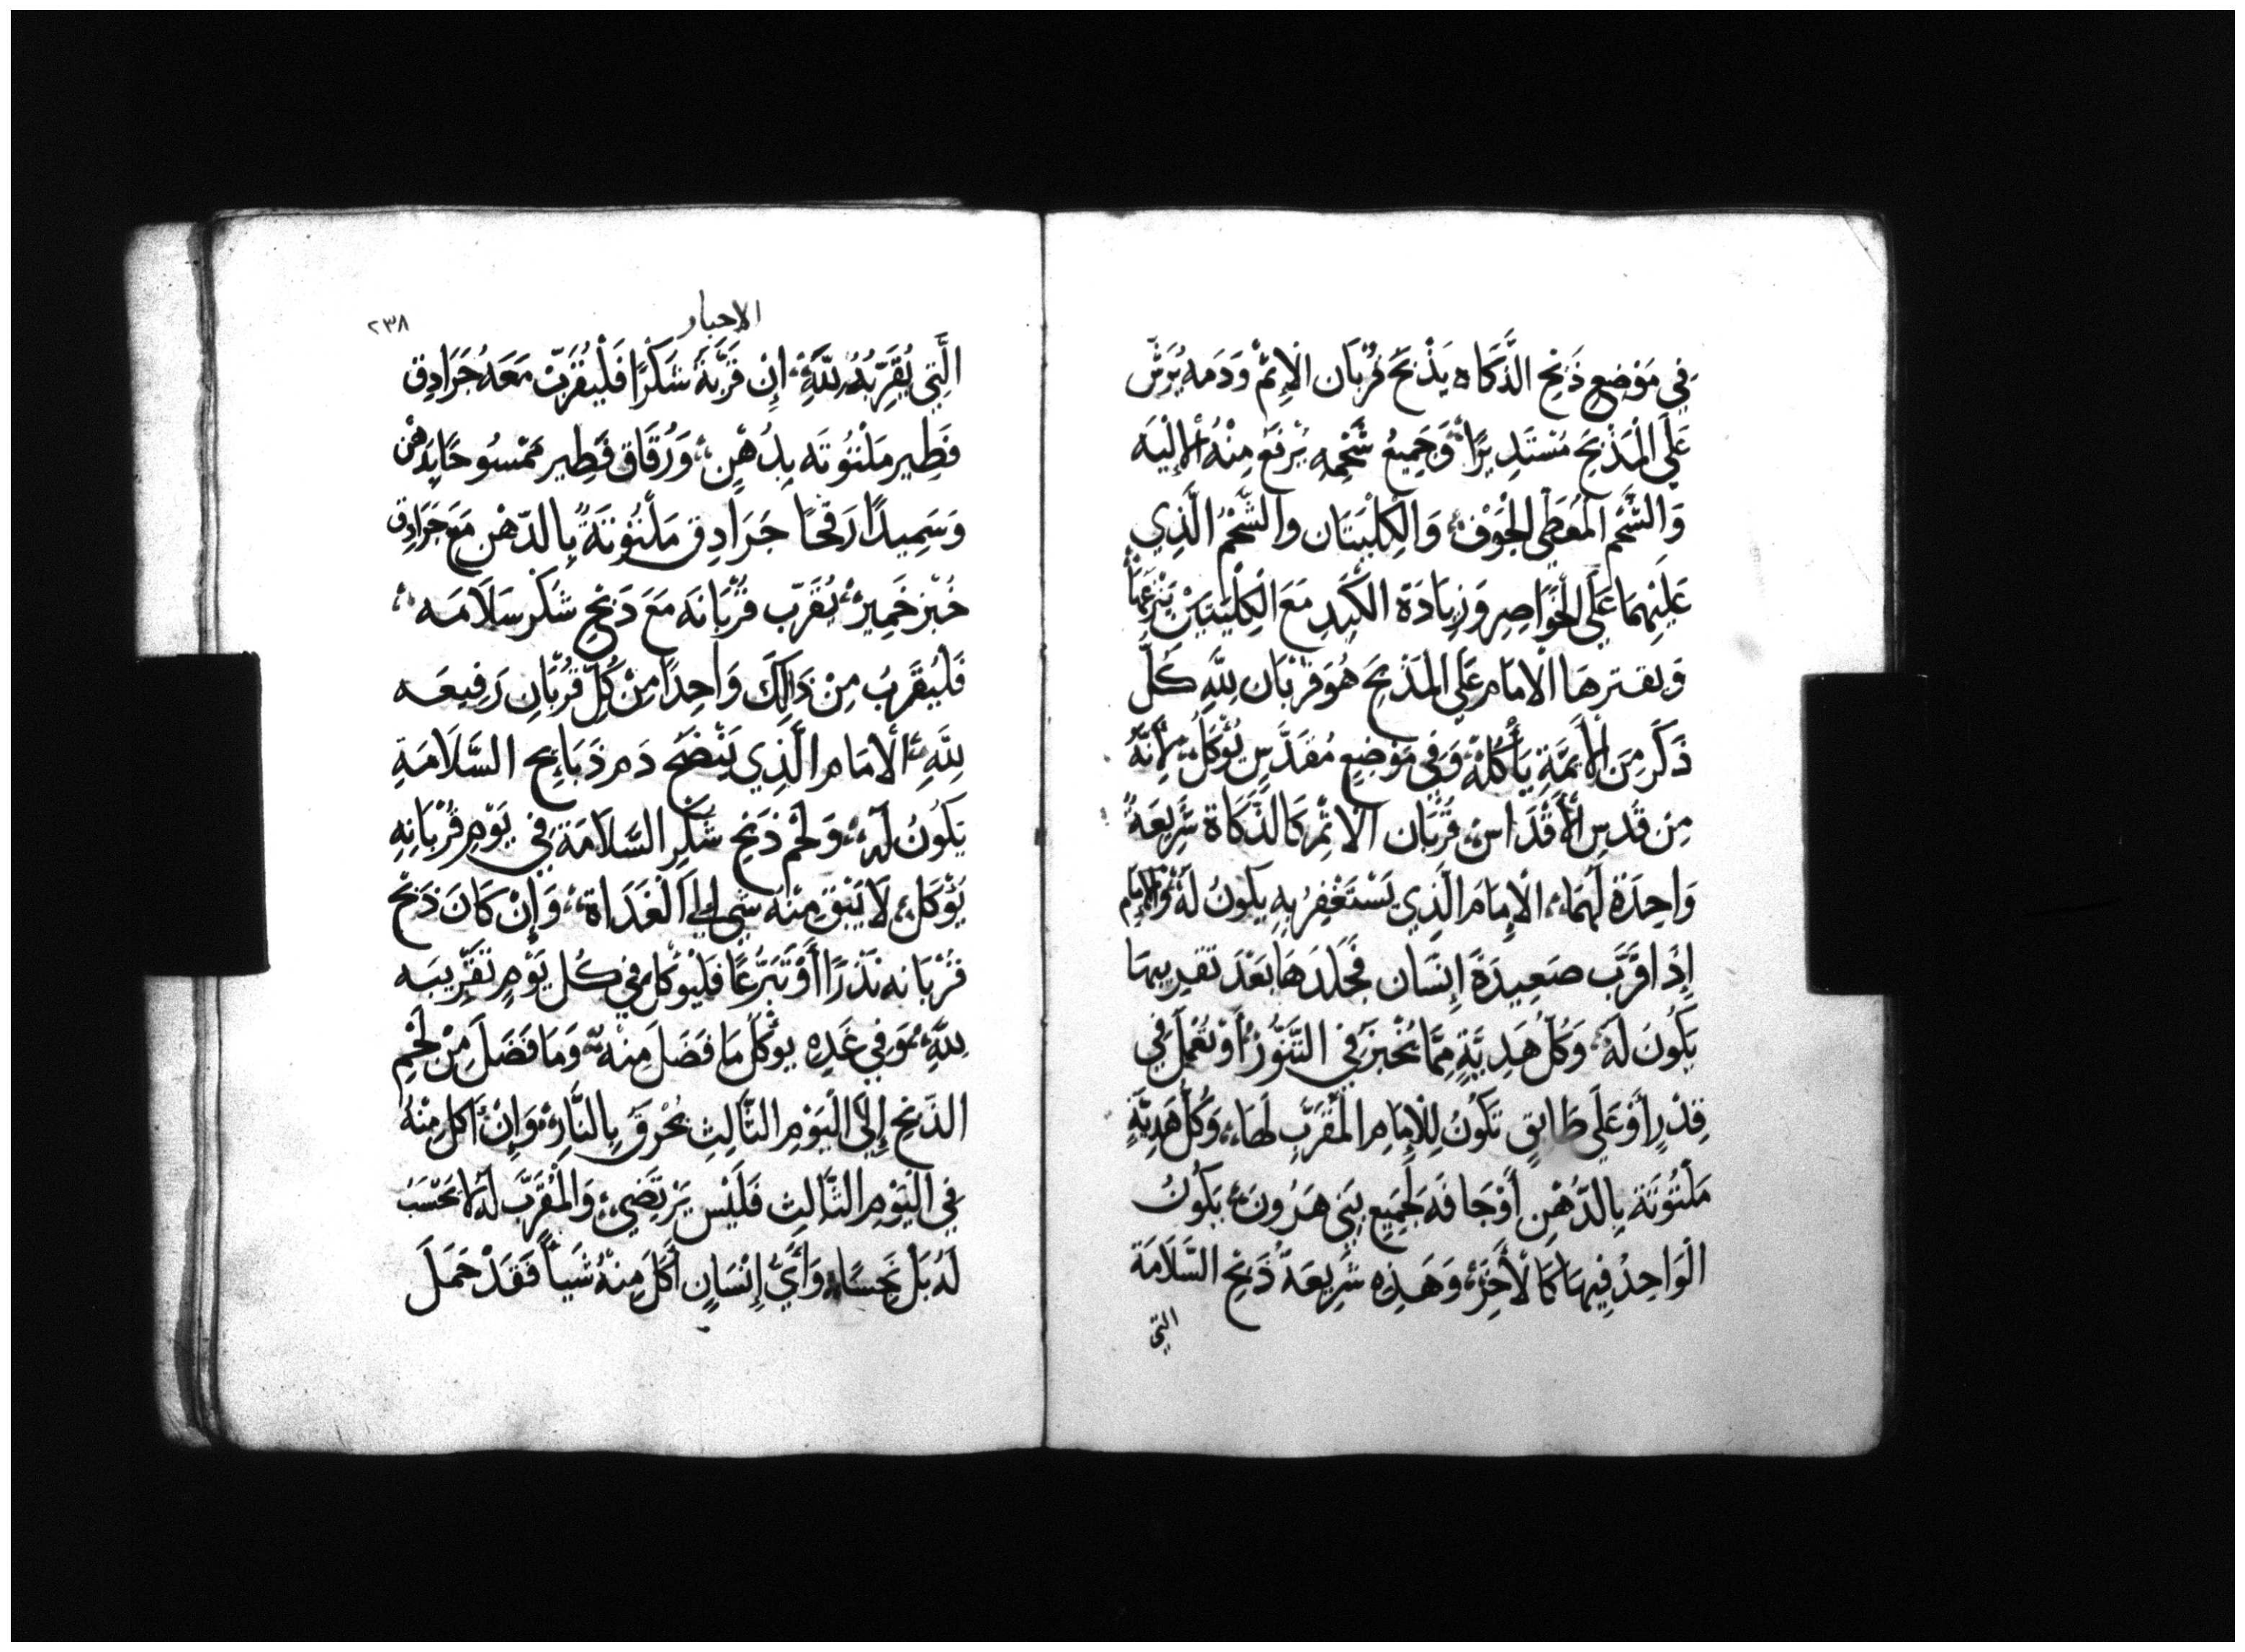 فِي مَوْضِعِ ذَبْحِ الذَّكَاه يَذْبَحَ قُرْبَان الإِثْمْ وَدَمه يُرَشَّ
عَلَى الْمَذْبَحَ مُسْتَدِيرًا وَجَمِيعُ شَحْمِهِ يُرْفَعُ مِنْهُ الإلِيَه
وَالشَّحْم الْمُغَطِّي الْجَوْف وَالْكِلْيَتَان والشَّحْمُ الَّذِي
عَلَيْهِمَا عَلَى الْخَوَاصِرِ وَزِيَادَة الكَبِدِ مَعَ الْكِلْيَتَيْنْ يَنْزِعَهَا
وَيقترهَا الْامَامر عَلَى الْمَذْبَحَ هُوَ قُرْبَان لِلَّهِ كُلّ
ذَكَر مِنَ الأَيِمَّةِ يَأْكُلهُ وَفِي مَوْضِعٍ مُقَدَّسٍ يُؤْكَلُ لِأَنَّهُ
مِن قُدسِ الأَقْدَاسِ قُرْبَان الْاثِمْ كَالذَّكَاة شَرِيعَةُ
وَاحِدَةً لَهُمَا الْإِمَامَ الَّذِي يَسْتَغْفِرُ بِهِ يَكُونُ لَهُ وَالْإِمَام
إِذَا قَرَّبَ صَعِيدَةَ إِنْسَان فَجَلَدهَا بَعْدَ تَقدِيبهَا
يَكُونَ لَهُ وَكُلّ هَدِيَّةٍ مِمَّا يُخْبَزُ فِي التَّنُّورْ أَوْ تُعْمَلُ فِي
قِدْرٍ أَوْ عَلَى طَابِقٍ تَكُونُ لِلْإِمَامِ الْمُقَرّبِ لَهَا وَكُلّ هَدِيَّةٍ
مَلْتُوتَة بِالدُّهْنِ أَوْجَافه لَجَمِيعِ بَنِي هَرُونَ يَكُونُ
الْوَاحِدُ فِيهَا كَالْأَخَرْ وَهَذِهِ شَرِيعَةُ ذَبْحِ السَّلَامَة
التي
الاحبار
٢٣٨
الَّتِي يُقَرِّبُهُ لِلَّهِ إِنْ قَرَّبَهُ شَكْرًا فَلْيُقَرِّبْ مَعَهُ جَرَادِق
فَطِير مَلْتُوتَه بِدُهْنٍ وَرُقَاق فَطِير مَمْسُوحًا بِدُهْنٍ
وَسَمِيدًا رَقحًا جَرَادِق مَلْتُوتَةُ بِالدّهْن مَعَ جَرَادِق
خُبْز خَمِيرْ يُقَرّب قُرْبَانَه مَعَ ذَبْحِ شُكْر سَلَامَه
فَليُقَرِبُ مِنْ ذَالِكَ وَاحِدًا مِنْ كُلّ قُرْبَانٍ رَفِيعَه
لِلَّهِ الْامَام الَّذِي يَنْضَحُ دَم ذَبَائِح السَّلَامَةِ
يَكُونُ لَهُ وَلَحْم ذَبْحِ شُكْرِ السَّلَامَة فِي يَوْمِ قُرْبَانِهِ
يُؤْكَلُ لَا يَبْقَ مِنْهُ شَي الَي الْغَدَاة وَإِنْ كَانَ ذَبْحَ
قُرْبَانِه نَذْرًا أَوْ تَبَرُّعًا فَلْيُؤكَل فِي كُل يَوْمٍ تَقْرِيبَه
لِلَّهِ وَفِي غَدِهِ يوكَلُ مَا فَضَلَ مِنْهُ وَمَا فَضَلَ مِنْ لَحْمِ
الذَبْحِ إِلَى الْيَوْمِ الثَّالِثِ يُحْرَقُ بِالنَّارِ وَإِنْ أَكل مِنْهُ
فِي الْيَوْمِ الثَّالِث فَلَيْس يَرْتَضِي وَالْمُقَرَّبَ لَهُ لا يَحْسَبُ
لَهُ بَلْ نَجِسًا وَأَيُّ إِنْسَانٍ أَكَلَ مِنْهُ شَيأً فَقَدْ حَمَلَ